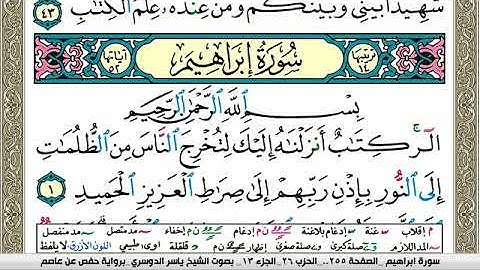 شَهِيدًۢا بَيْنِي وَبَيْنَكُمْ وَمَنْ عِندَهُۥ عِلْمُ ٱلْكِتَٰبِ ٤٣
ترتيبها ١٤ سُورَةُ إِبْرَاهِيم آياتها ٥٢
بِسْمِ ٱللَّهِ ٱلرَّحْمَٰنِ ٱلرَّحِيمِ
الٓر ۚ كِتَٰبٌ أَنزَلْنَٰهُ إِلَيْكَ لِتُخْرِجَ ٱلنَّاسَ مِنَ ٱلظُّلُمَٰتِ
إِلَى ٱلنُّورِ بِإِذْنِ رَبِّهِمْ إِلَىٰ صِرَٰطِ ٱلْعَزِيزِ ٱلْحَمِيدِ ١
م إقلاب غنة إدغام بلاغنة إدغام إخفاء مد متصل مد منفصل
المد اللازم صلة كبرى صلة صغرى قلقلة طبيعي اللون الأزرق لا يلفظ
سورة ابراهيم _ الصفحة ٢٥٥_ الحزب ٢٦ _ الجزء ١٣ _ بصوت الشيخ ياسر الدوسري _ برواية حفص عن عاصم